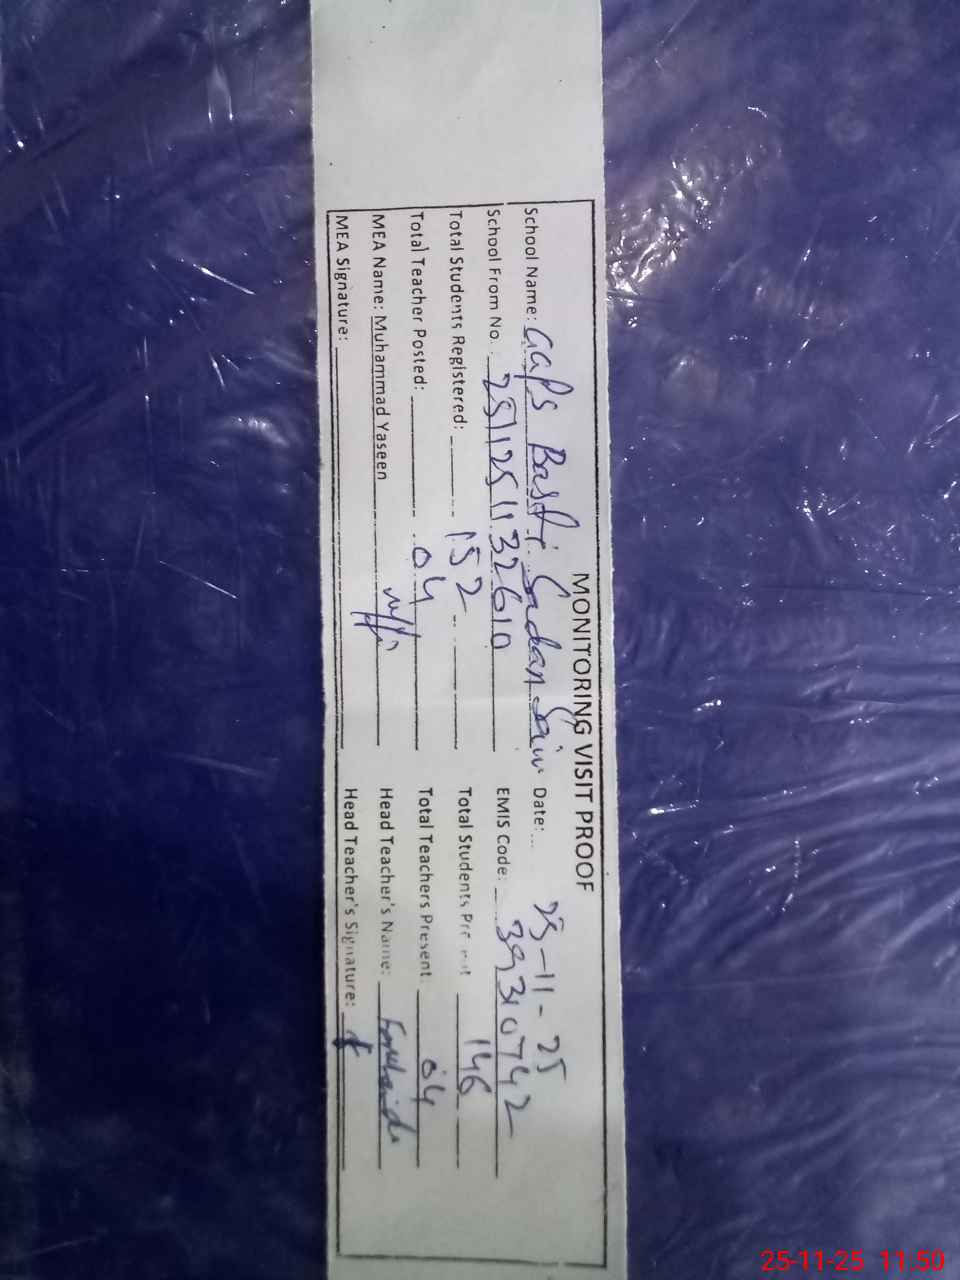 MONITORING VISIT PROOF
School Name: GGPS Basti Sadan Sain Date: 25-11-25
School From No. : 2511251132610 EMIS Code: 39310742
Total Students Registered: 152 Total Students Present 146
Total Teacher Posted: 04 Total Teachers Present: 04
MEA Name: Muhammad Yaseen Head Teacher's Name:
MEA Signature: Head Teacher's Signature:
25-11-25 11:50